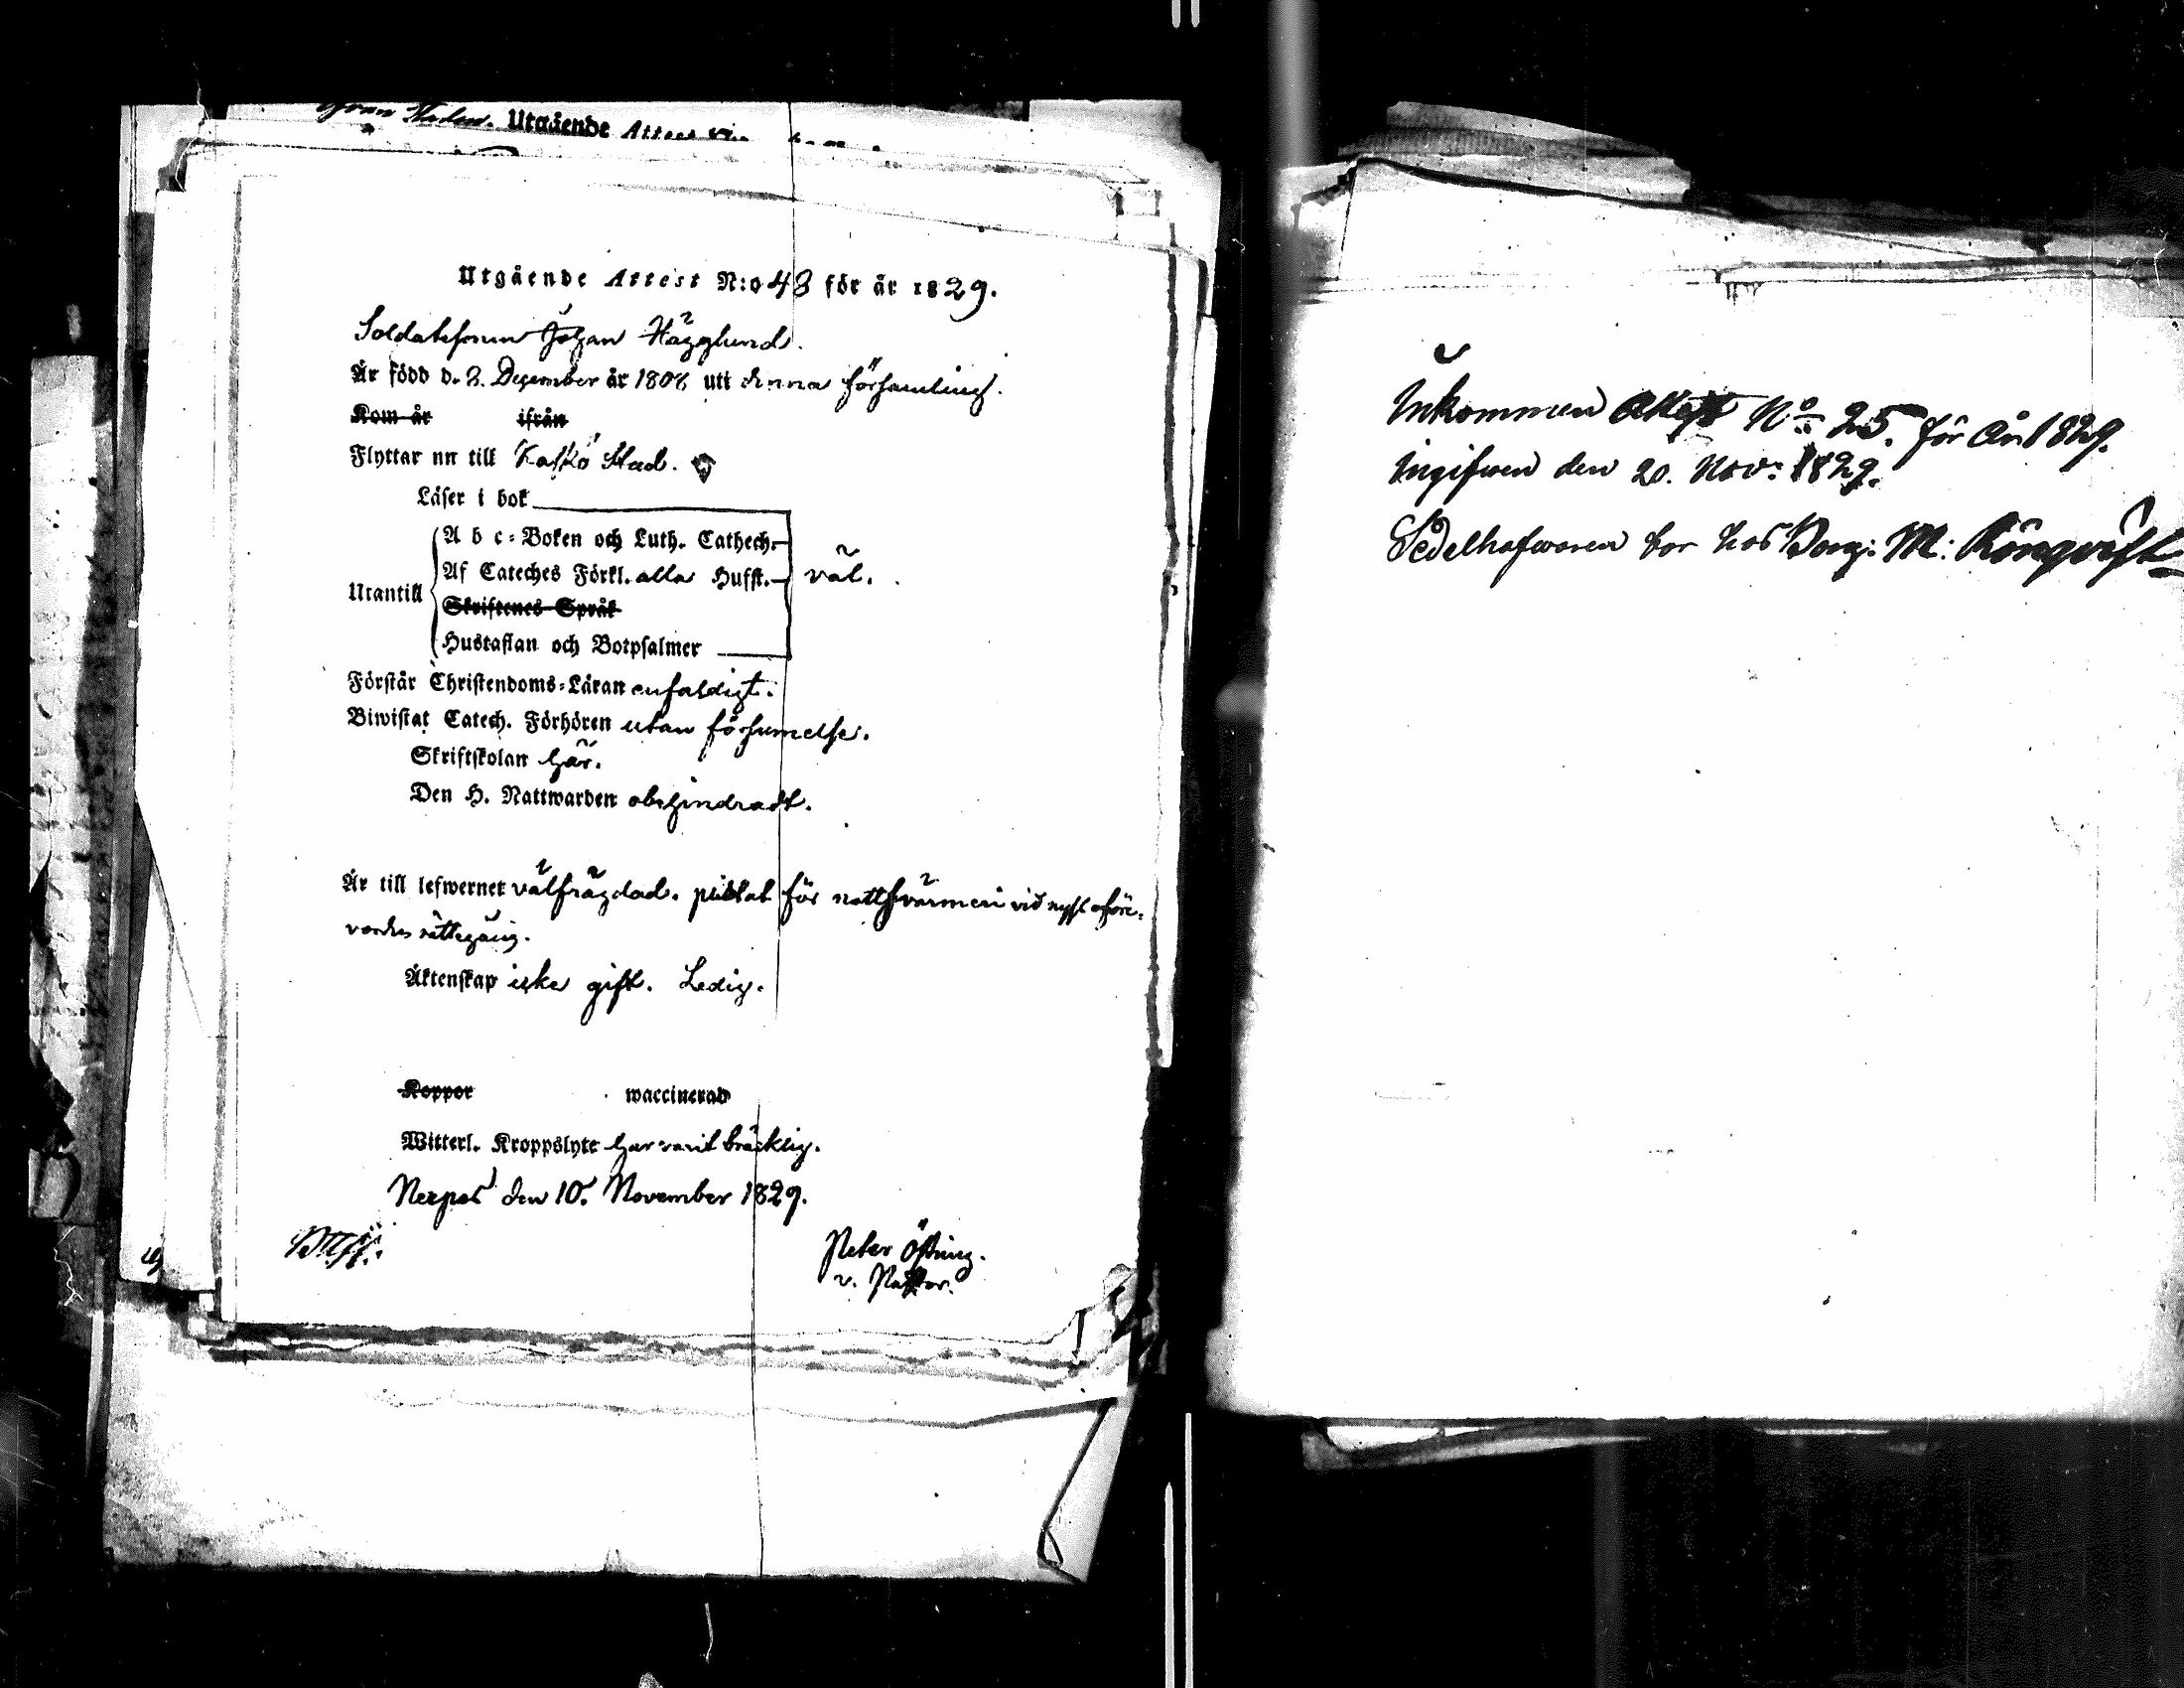 från Staden. Utgående Attest
Utgående Attest N:o 48 för år 1829.
Soldatsonen Johan Hägglund.
Är född d. 2. December år 1808 uti denna församling.
Kom år ifrån
Flyttar nu till Kaskö Stad.
Läser i bok
A b c-Boken och Luth. Cathech.
Af Cateches Förkl. alla Hufst.
väl.
Utantill
Skriftenes Språk
Hustaflan och Botpsalmer
Förstår Christendoms-Läran enfaldigt.
Biwistat Catech. Förhören utan försumelse.
Skriftskolan här.
Den H. Nattwarden obehindradt.
Är till lefwernet välfrägdad. pliktat för nattsvärmeri vid nyss
rättegång.
Äktenskap icke gift. Ledig.
Koppor waccinerad
Witterl. Kroppslyte har varit bräcklig.
Nerpes den 10. November 1829.
Peter Östring.
v. Pastor.
Inkommen Attest No 25. för År 1829.
Ingifwen den 20. Nov: 1829.
Sedelhafwaren bor hos Borg: M: Rönqvist